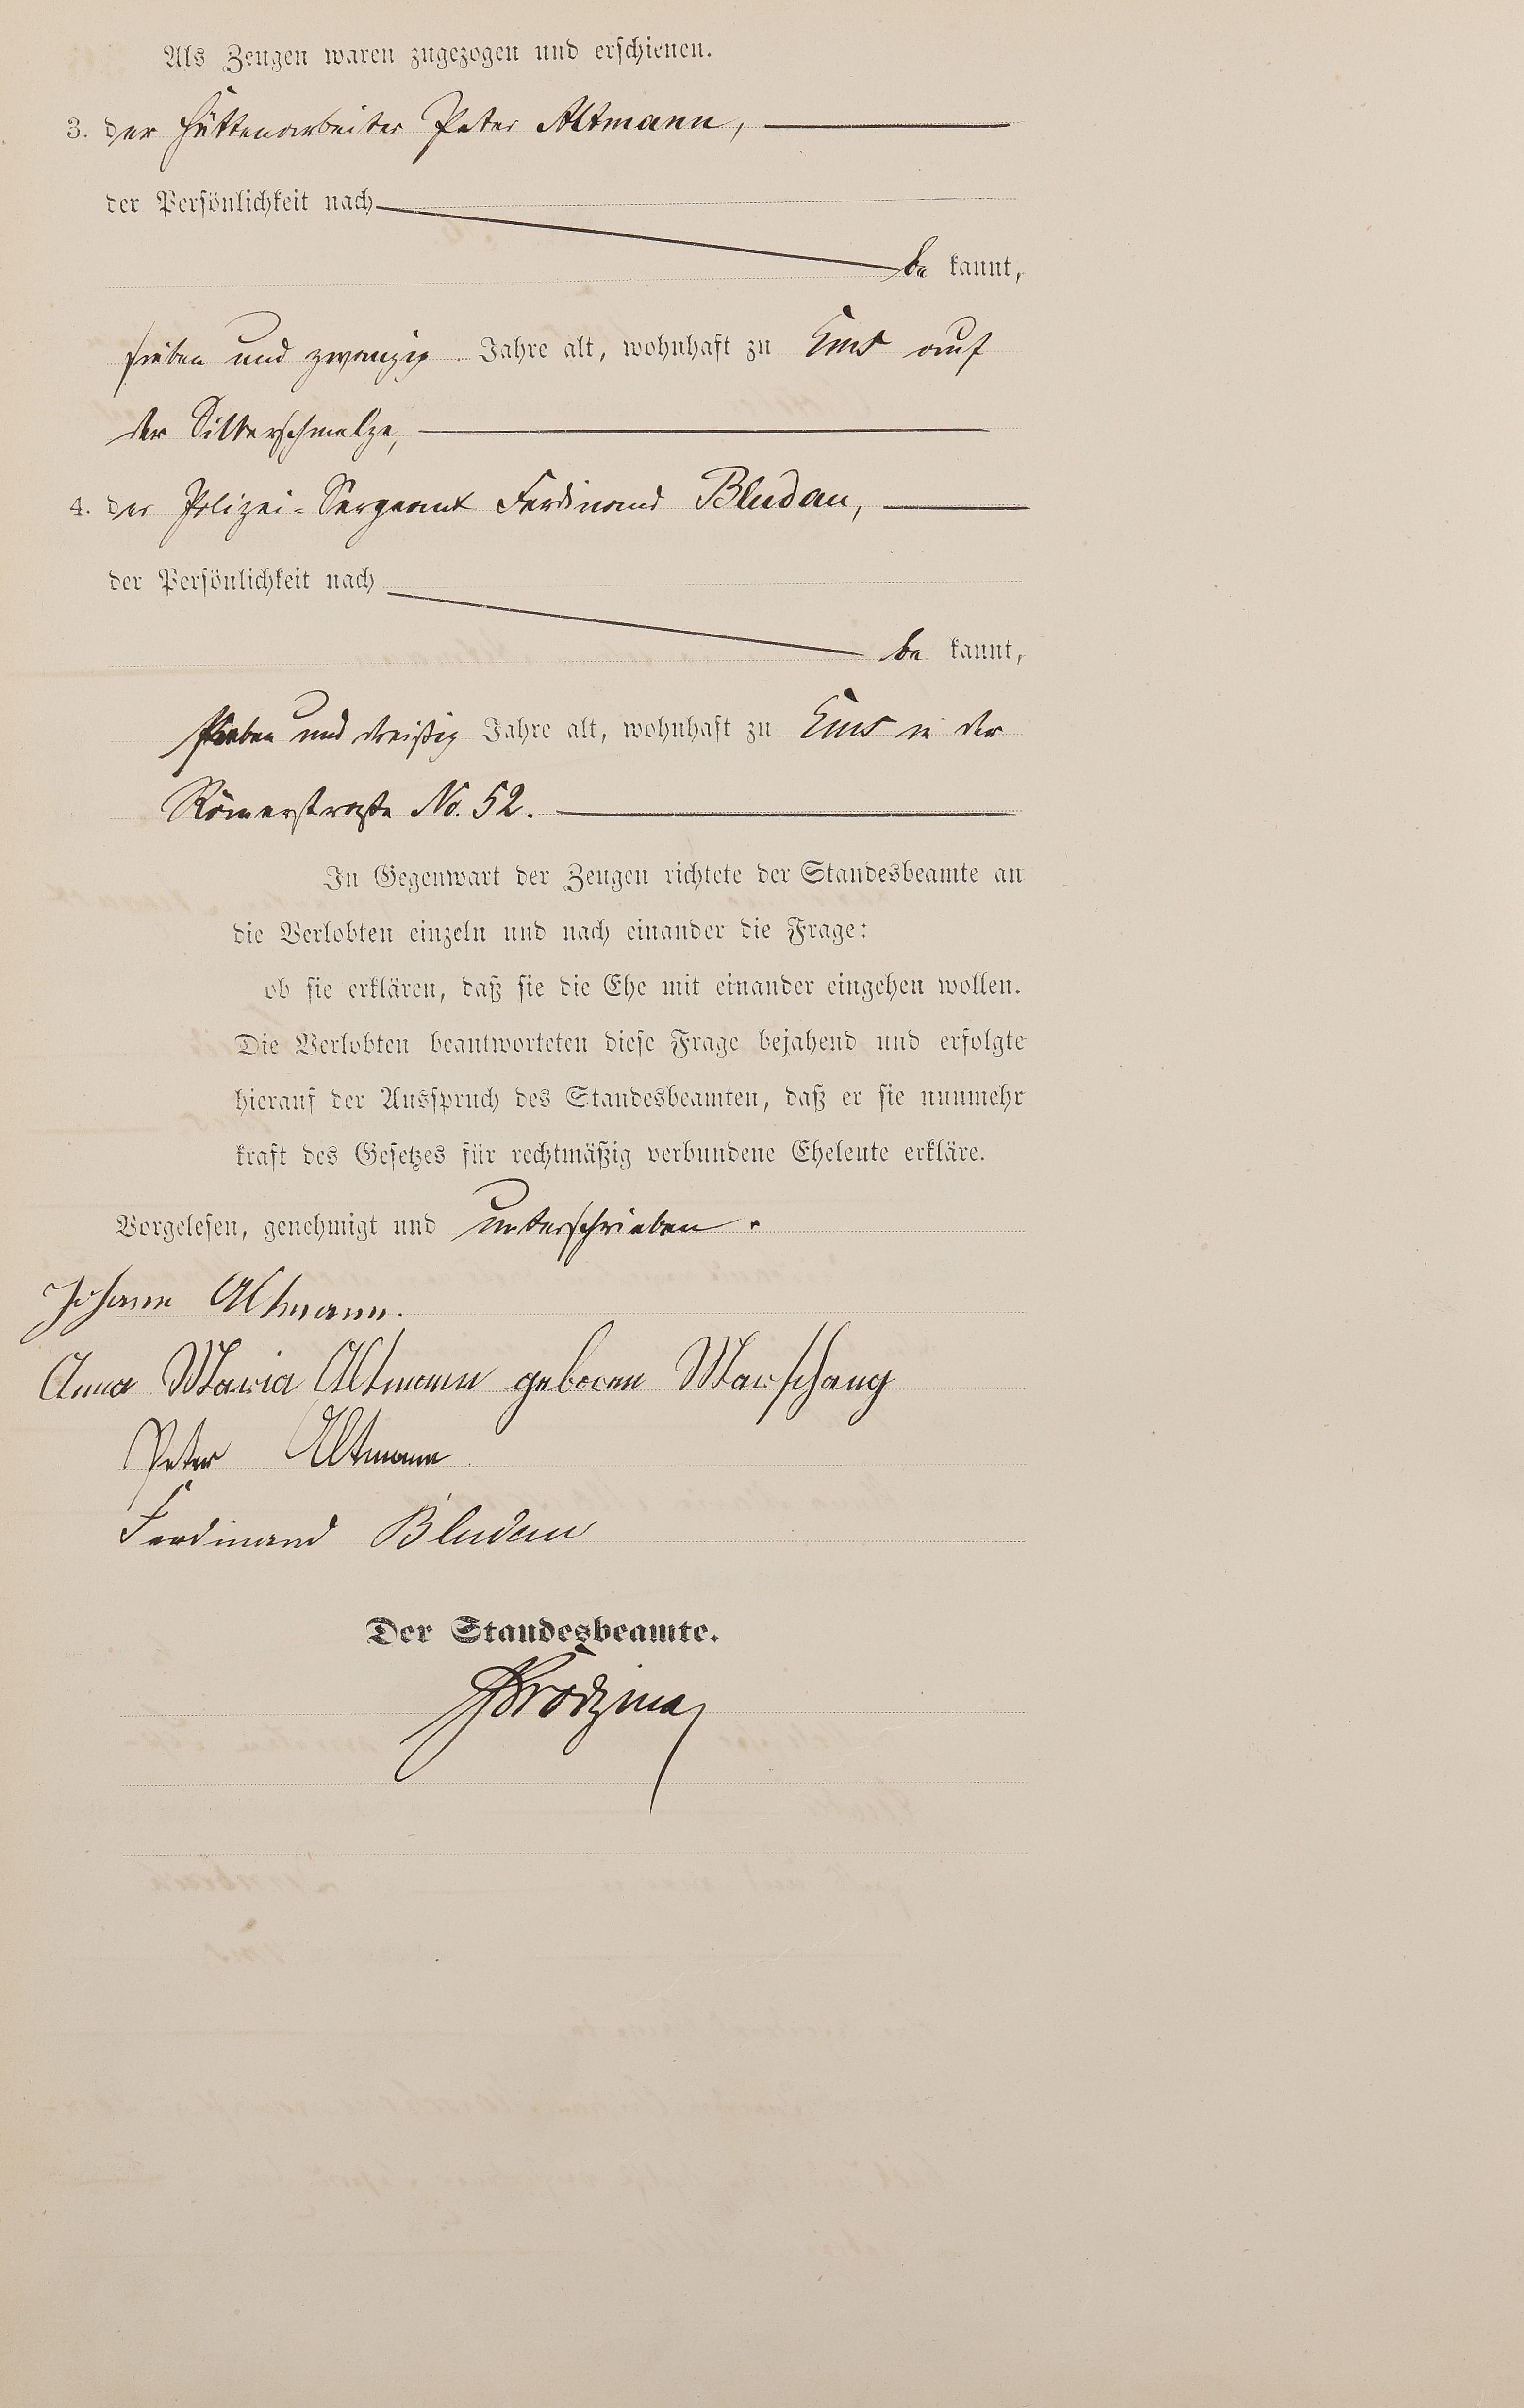 Als Zeugen waren zugezogen und erschienen.
3. der Hüttenarbeiter Peter Altmann,
der Persönlichkeit nach
be kannt,
sieben und zwanzig Jahre alt, wohnhaft zu Ems auf
der Silberschmelze,
4. der Polizei-Sergeant Ferdinand Bludau,
der Persönlichkeit nach
be kannt,
sieben und dreißig Jahre alt, wohnhaft zu Ems in der
Römerstraße No. 52.
In Gegenwart der Zeugen richtete der Standesbeamte an
die Verlobten einzeln und nach einander die Frage:
ob sie erklären, daß sie die Ehe mit einander eingehen wollen.
Die Verlobten beantworteten diese Frage bejahend und erfolgte
hierauf der Ausspruch des Standesbeamten, daß er sie nunmehr
kraft des Gesetzes für rechtmäßig verbundene Eheleute erkläre.
Vorgelesen, genehmigt und unterschrieben.
Johann Altmann.
Anna Maria Altmann geboren Marschang
Peter Altmann
Ferdinand Bludau
Der Standesbeamte.